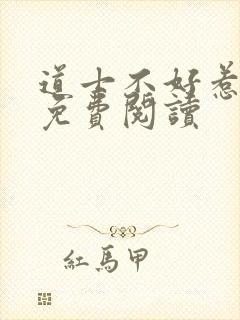 道士不好惹
免費閱讀
紅馬甲